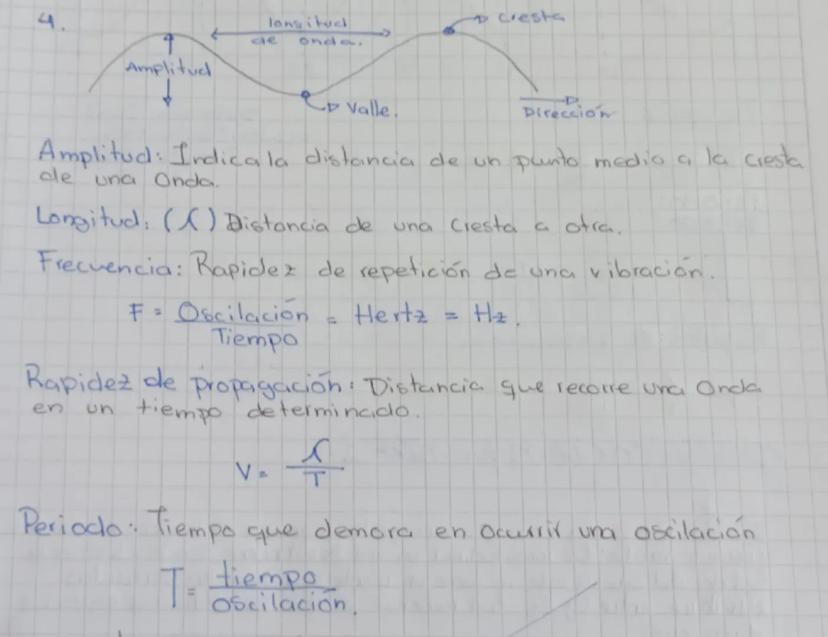 4.
longitud
de onda.
Cresta
Amplitud
Valle.
Dirección
Amplitud: Indica la distancia de un punto medio a la cresta
de una Onda.
Longitud: (λ) Distancia de una cresta a otra.
Frecuencia: Rapidez de repetición de una vibración.
F = Oscilación = Hertz = Hz.
Tiempo
Rapidez de propagación: Distancia que recorre una Onda
en un tiempo determinado.
V = λ
T
Periodo: Tiempo que demora en ocurrir una oscilación
T = tiempo
oscilación.